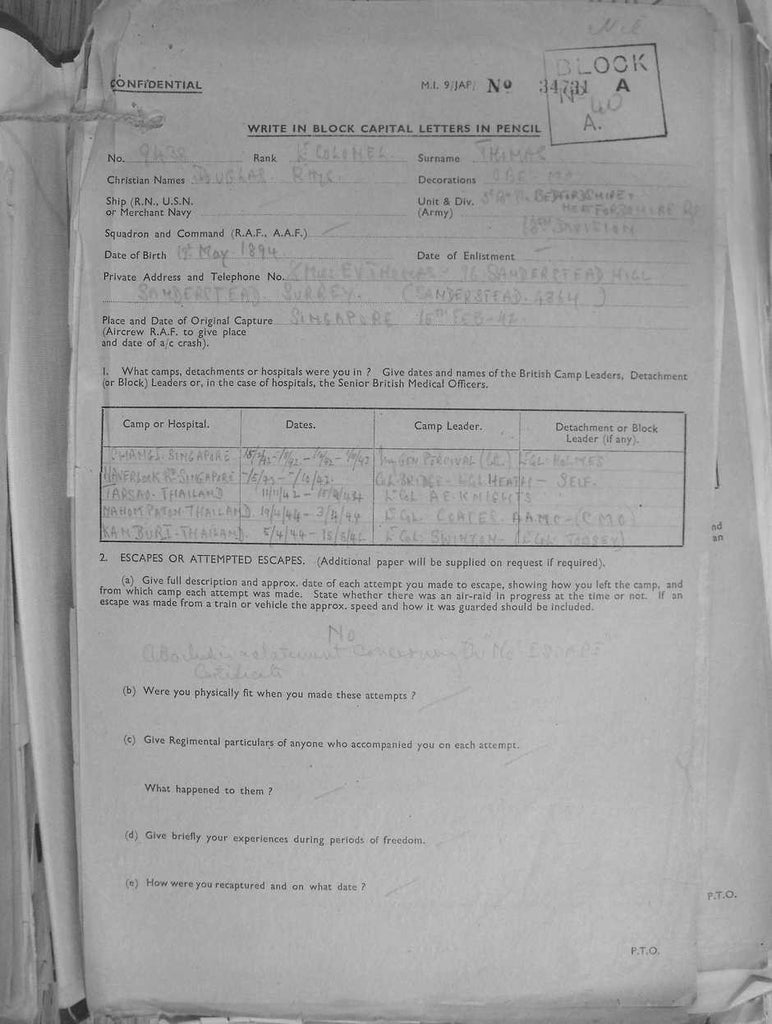 Nil
CONFIDENTIAL
M.I. 9/JAP/ No 34731
BLOCK
A
40
A.
WRITE IN BLOCK CAPITAL LETTERS IN PENCIL
No. 9438 Rank Lt COLONEL Surname THOMAS
Christian Names DOUGLAS Decorations OBE. MC
Ship (R.N., U.S.N. or Merchant Navy
Unit & Div. (Army) BEDFORDSHIRE & HERTFORDSHIRE
18TH DIVISION
Squadron and Command (R.A.F., A.A.F.)
Date of Birth May 1894 Date of Enlistment
Private Address and Telephone No. (Mrs E V THOMAS 96 SANDERSTEAD HILL
SANDERSTEAD. SURREY. (SANDERSTEAD. 4364)
Place and Date of Original Capture SINGAPORE 15TH FEB-42
(Aircrew R.A.F. to give place
and date of a/c crash).
1. What camps, detachments or hospitals were you in ? Give dates and names of the British Camp Leaders, Detachment
(or Block) Leaders or, in the case of hospitals, the Senior British Medical Officers.
Camp or Hospital. Dates. Camp Leader. Detachment or Block Leader (if any).
CHANGI. SINGAPORE GEN PERCIVAL Lt COL HOLMES
HAVERLOCK RD SINGAPORE Lt COL HEATH - SELF.
TARSAO. THAILAND 11/11/42 Lt COL A E KNIGHTS
NAHOM PATON. THAILAND 3/4/44 Lt COL COATES AAMC
KAMBURI. THAILAND 5/4/44 Lt COL SWINTON Lt COL TOOSEY
2. ESCAPES OR ATTEMPTED ESCAPES. (Additional paper will be supplied on request if required).
(a) Give full description and approx. date of each attempt you made to escape, showing how you left the camp, and
from which camp each attempt was made. State whether there was an air-raid in progress at the time or not. If an
escape was made from a train or vehicle the approx. speed and how it was guarded should be included.
No
Attached is a statement concerning the "No ESCAPE"
Certificate
(b) Were you physically fit when you made these attempts ?
(c) Give Regimental particulars of anyone who accompanied you on each attempt.
What happened to them ?
(d) Give briefly your experiences during periods of freedom.
(e) How were you recaptured and on what date ?
P.T.O.
nd
an
P.T.O.